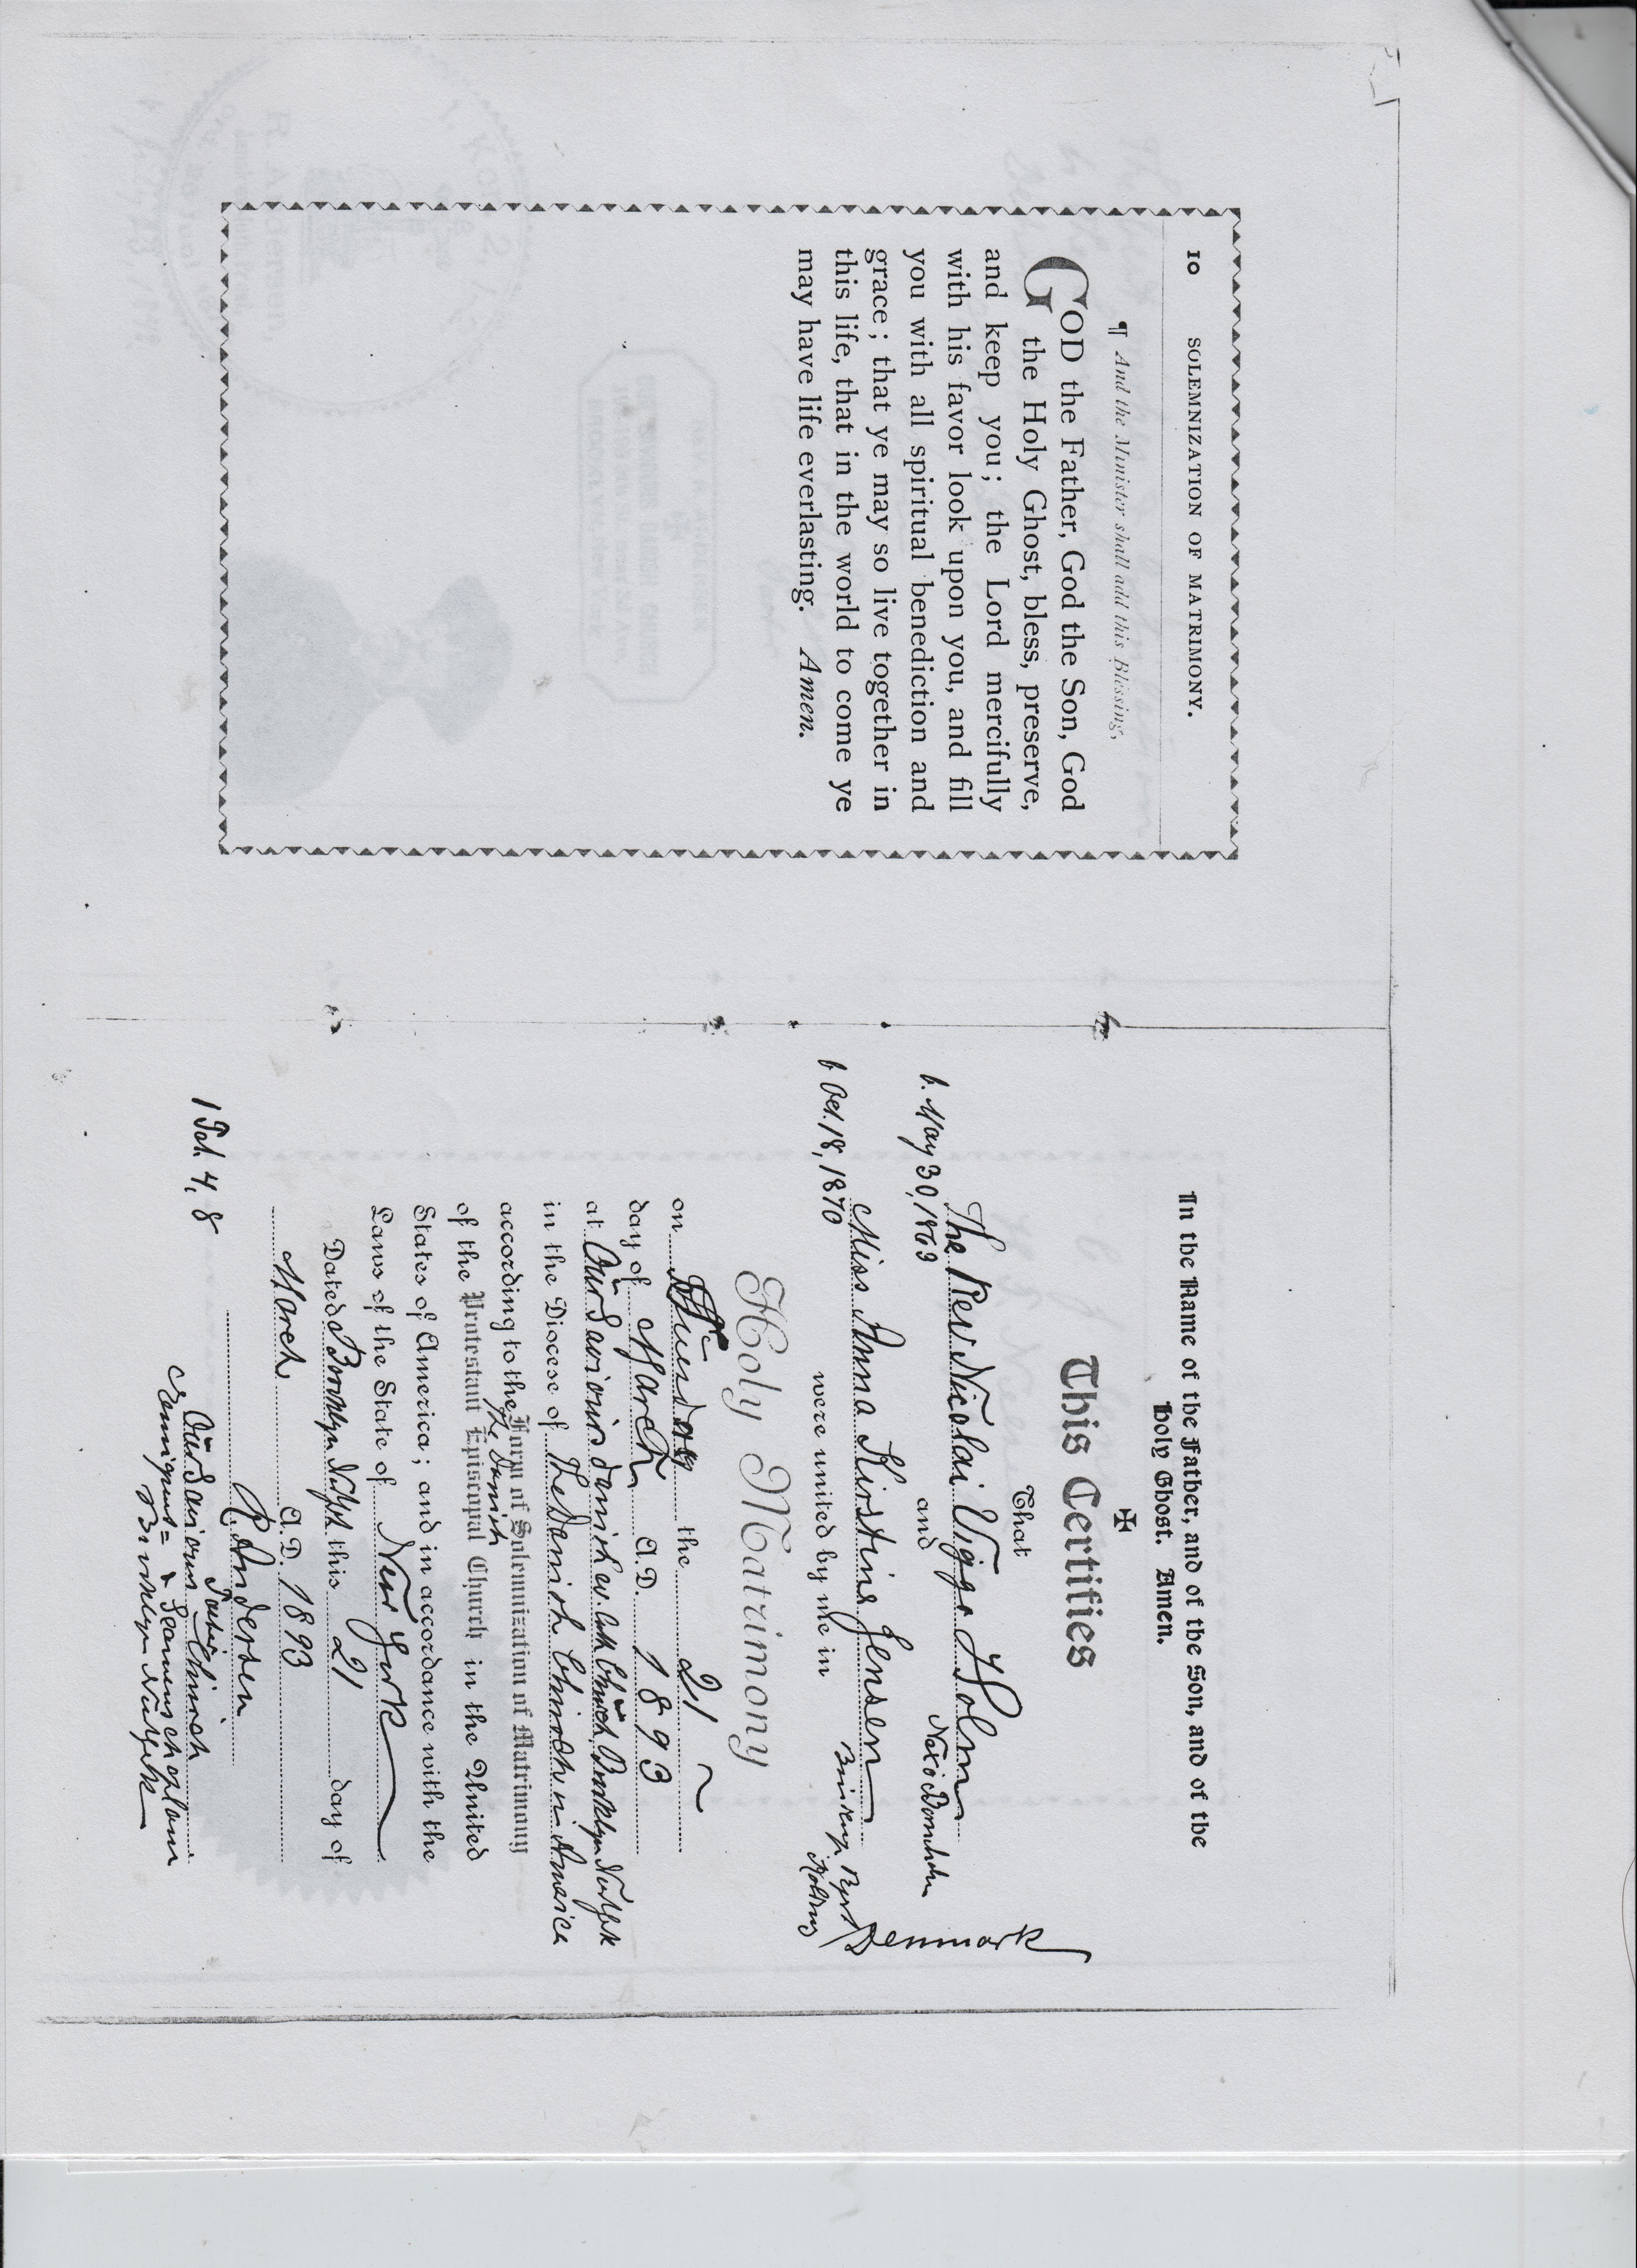 10 SOLEMNIZATION OF MATRIMONY.
¶ And the Minister shall add this Blessing,
GOD the Father, God the Son, God
the Holy Ghost, bless, preserve,
and keep you; the Lord mercifully
with his favor look upon you, and fill
you with all spiritual benediction and
grace; that ye may so live together in
this life, that in the world to come ye
may have life everlasting. Amen.
In the Name of the Father, and of the Son, and of the
Holy Ghost. Amen.
This Certifies
That
The Rev Nicolai Viggo Holm
b. May 30, 1863
and
Nexö Bornholm
Miss Anna Kirstine Jensen
b Oct. 18, 1870
Kolding
Denmark
were united by me in
Holy Matrimony
on Tuesday the 21
day of March A.D. 1893
at Our Saviours danish ev. luth Church Brooklyn NewYork
in the Diocese of The Danish Church in America
according to the Form of Solemnization of Matrimony
The Danish
of the Protestant Episcopal Church in the United
States of America; and in accordance with the
Laws of the State of New York
Dated Brooklyn NewYork this 21 day of
March A.D. 1893
R. Andersen
Pastor
Our Saviours Church
Emigrant- & Seamens chaplain
Brooklyn NewYork
1 Pet. 4, 8